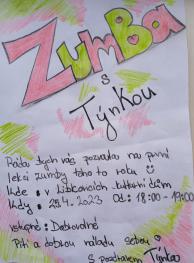 ZUMBA
s
Týnkou
Ráda bych vás pozvala na první
lekci zumby toho to roku
Kde: v Libkovicích kulturní dům
Kdy: 28.4.2023 Od: 18:00 - 19:00
vstupné: Dobrovolné
Pití a dobrou náladu sebou
S pozdravem Týnka